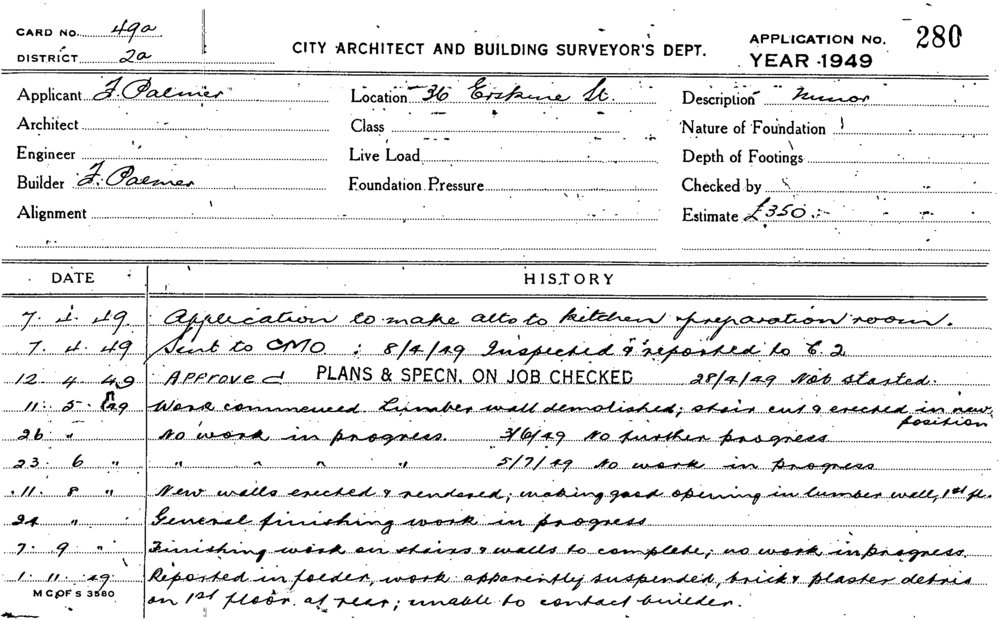 CARD No. 49a
DISTRICT 2a
CITY ARCHITECT AND BUILDING SURVEYOR'S DEPT.
APPLICATION No. 280
YEAR 1949
Applicant F. Palmer
Location 36 Erskine St.
Description Minor
Architect
Class
Nature of Foundation
Engineer
Live Load
Depth of Footings
Builder F. Palmer
Foundation Pressure
Checked by
Alignment
Estimate £350:-
DATE HISTORY
7. 4. 49 Application to make alts to kitchen & preparation room.
7. 4. 49 Sent to CMO : 8/4/49 Inspected & reported to C. 2
12. 4. 49 Approved PLANS & SPECN. ON JOB CHECKED 28/4/49 Not started.
11. 5. 49 Work commenced. Lumber wall demolished; stair cut & erected in new position
26 " No work in progress. 3/6/49 No further progress
23. 6 " " " " " 5/7/49 No work in progress
11. 8 " New walls erected & rendered; making good opening in lumber wall, 1st fl.
24 " General finishing work in progress
7. 9 " Finishing work on stairs & walls to complete; no work in progress.
1. 11. 49 Reported in folder, work apparently suspended, brick & plaster debris
M C OF S 3580
on 1st floor at rear; unable to contact builder.